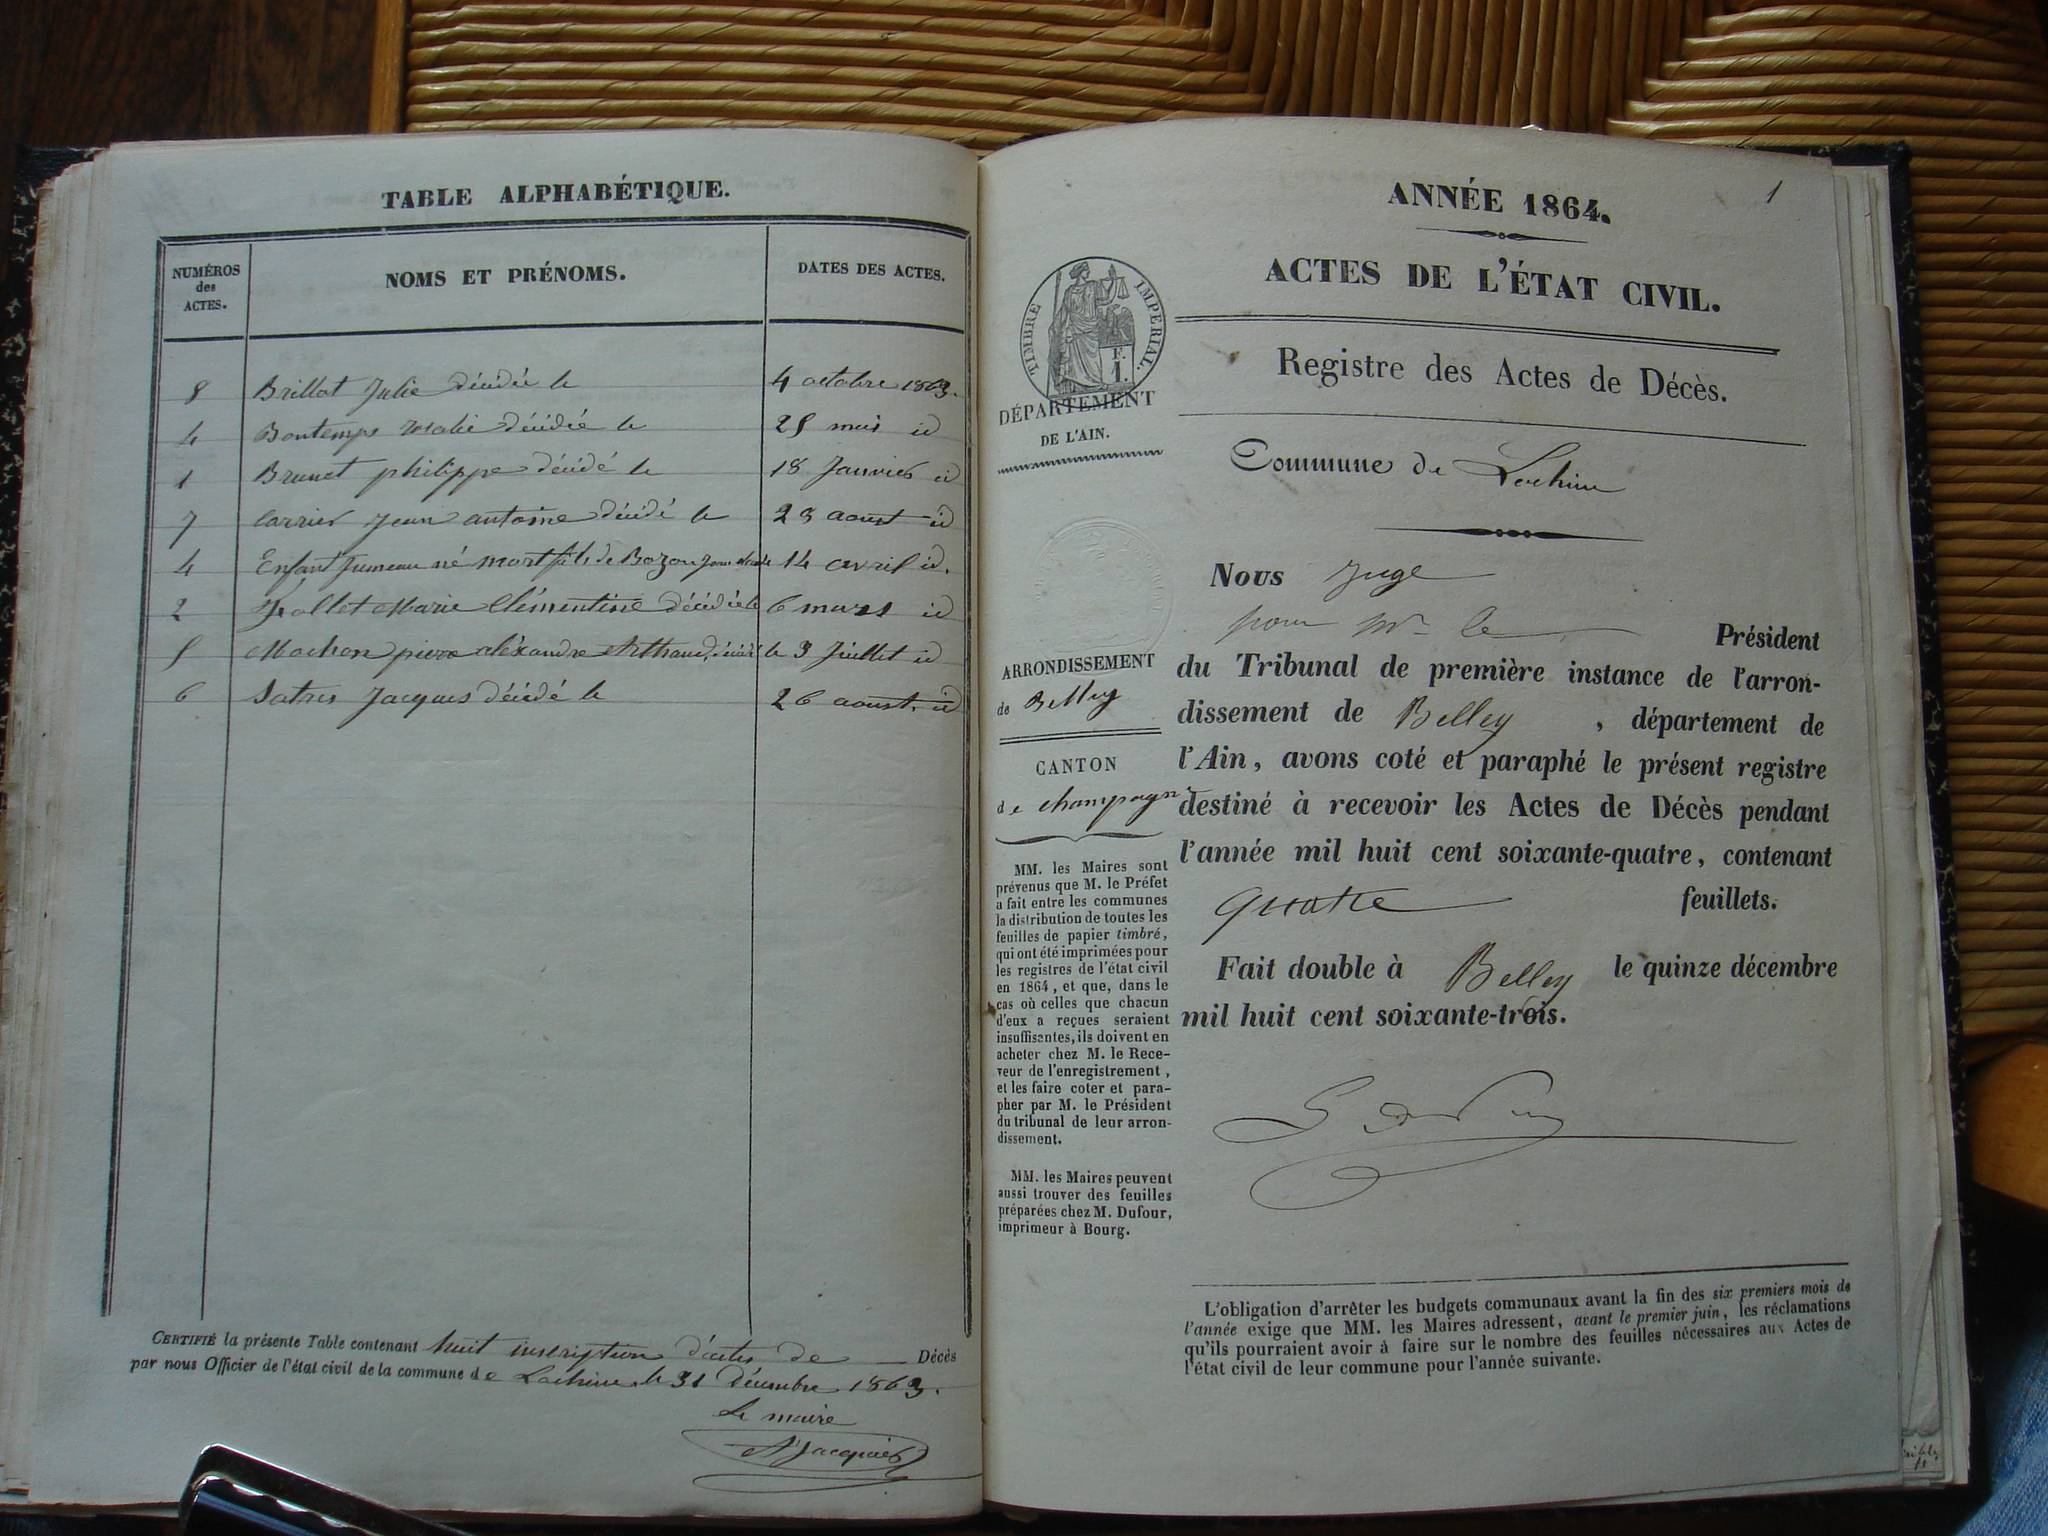 TABLE ALPHABÉTIQUE.
NUMÉROS
des
ACTES.
NOMS ET PRÉNOMS.
DATES DES ACTES.
8 Brillat Julie décédée le 4 octobre 1863.
4 Bontemps rosalie décédée le 25 mai id
1 Brunet philippe décédé le 18 Janvier id
7 Carrier Jean antoine décidé le 28 aoust id
4 Enfant Jumeau né mort fils de Bozon Jean 14 avril id.
2 Marie Clémentine décédée le 6 mars id
5 Machon pierre aléxandre décédé le 3 Juillet id
6 Jacques décédé le 26 aoust. id
CERTIFIÉ la présente Table contenant huit inscription d'actes de Décès
par nous Officier de l'état civil de la commune de Lochieu le 31 Décembre 1863.
Le maire
Jacquier
1
ANNÉE 1864.
ACTES DE L'ÉTAT CIVIL.
TIMBRE IMPÉRIAL.
F.
1.
DÉPARTEMENT
DE L'AIN.
Registre des Actes de Décès.
Commune de Lochieu
ARRONDISSEMENT
de Belley
CANTON
de champagne
MM. les Maires sont
prévenus que M. le Préfet
a fait entre les communes
la distribution de toutes les
feuilles de papier timbré,
qui ont été imprimées pour
les registres de l'état civil
en 1864, et que, dans le
cas où celles que chacun
d'eux a reçues seraient
insuffisantes, ils doivent en
acheter chez M. le Rece-
veur de l'enregistrement,
et les faire coter et para-
pher par M. le Président
du tribunal de leur arron-
dissement.
MM. les Maires peuvent
aussi trouver des feuilles
préparées chez M. Dufour,
imprimeur à Bourg.
NOUS Juge
pour Mr le Président
du Tribunal de première instance de l'arron-
dissement de Belley, département de
l'Ain, avons coté et paraphé le présent registre
destiné à recevoir les Actes de Décès pendant
l'année mil huit cent soixante-quatre, contenant
quatre feuillets.
Fait double à Belley le quinze décembre
mil huit cent soixante-trois.
L'obligation d'arrêter les budgets communaux avant la fin des six premiers mois de
l'année exige que MM. les Maires adressent, avant le premier juin, les réclamations
qu'ils pourraient avoir à faire sur le nombre des feuilles nécessaires aux Actes de
l'état civil de leur commune pour l'année suivante.